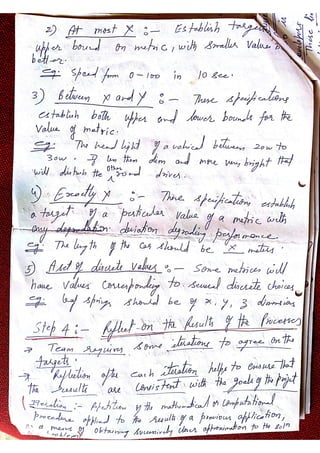 2) At most X :- Establish targets
upper bound on metric, with smaller values
better.
Eg: Speed from 0-100 in 10 sec.
3) Between X and Y :- These specifications
establish both upper and lower bounds for the
value of metric.
Eg: The head light of a vehical between 20w to
30w. If less than dim and more very bright that
will disturb the other round driver.
4) Exactly X :- These specifications establish
a target of a particular value of a metric with
any degradation deviation degrading performance.
Eg The length of the car should be "X" meters.
5) A set of discrete values :- Some metrices will
have values corresponding to several discrete choices
Eg leaf springs should be of x, y, z diamensions
Step 4 :- Reflect on the Results of the Processes
→ Team requires some iterations to agree on the
targets.
→ Reflection after each iteration helps to ensure that
the results are consistent with the goals of the project
Iteration :- Repetition of the mathematical or computational
procedure applied to the results of a previous application,
as a means of obtaining successively closer approximation to the soln